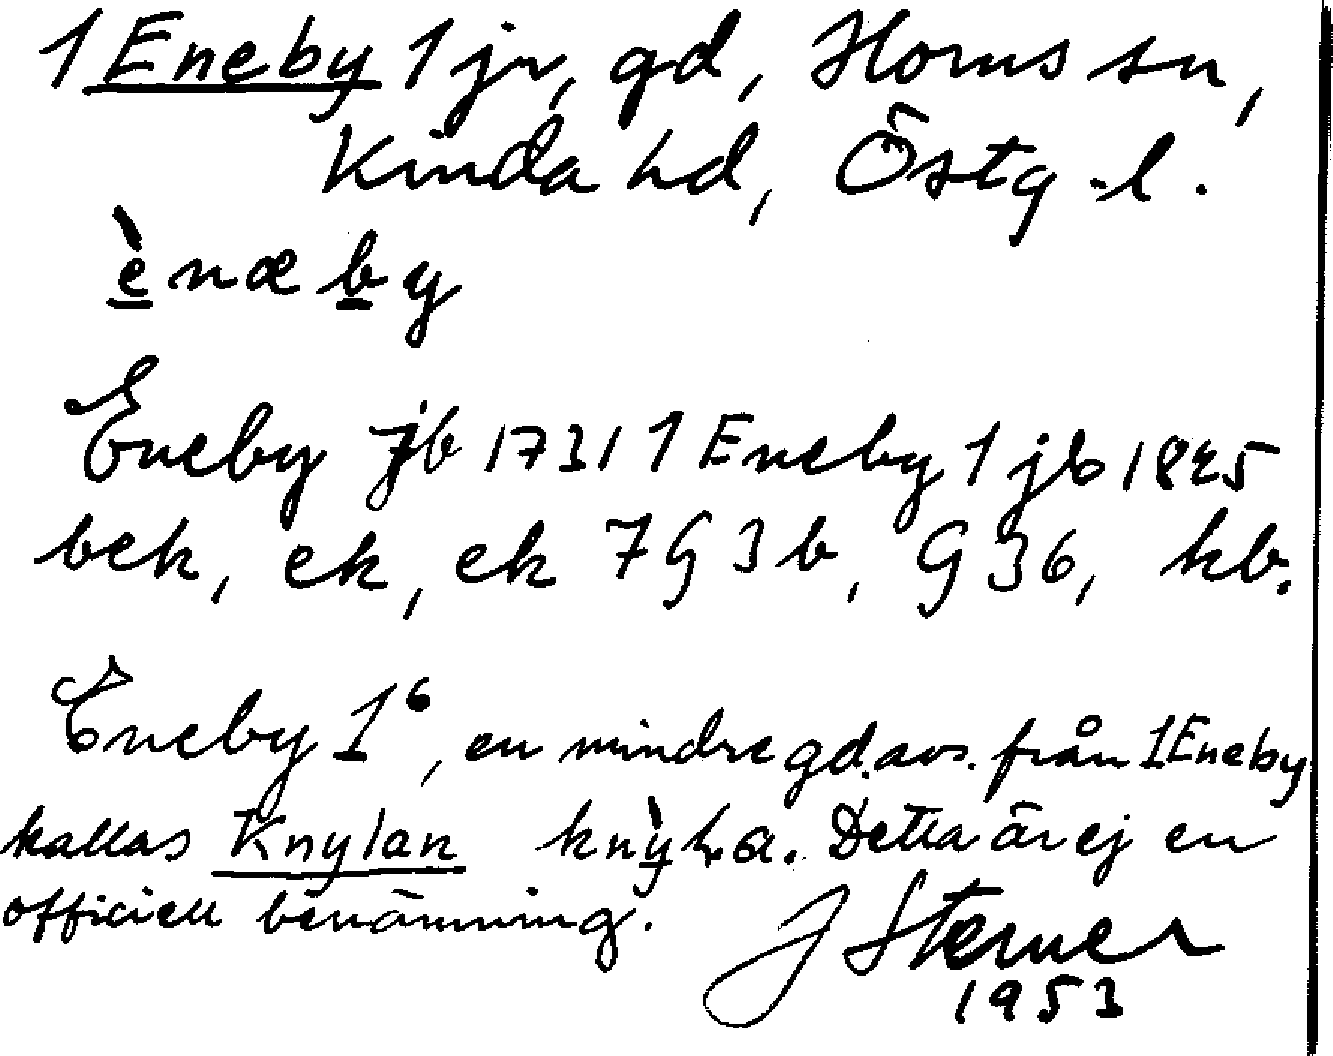 1 Eneby 1 jr, gd, Horns sn,
Kinda hd, Östg.l.
ènæby
Eneby Jb 1731 1 Eneby 1 jb 1825
bek, ek, ek 7G3b, G36, kb.
Eneby 1⁶, en mindre gd. avs. från 1 Eneby
kallas Knylan Detta är ej en
officiell benämning.
J Sterner
1953